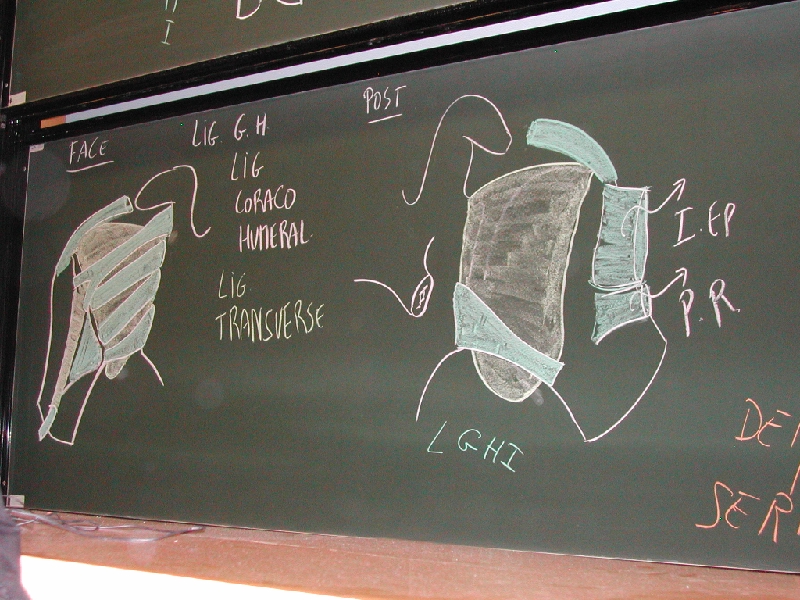 FACE
LIG. G.H.
LIG
CORACO
HUMERAL
LIG
TRANSVERSE
POST
I.EP
P.R.
LGHI